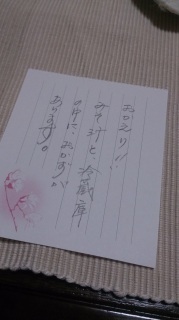 おかえり!!
みそ汁と、冷蔵庫
の中に、おかずが
あります。